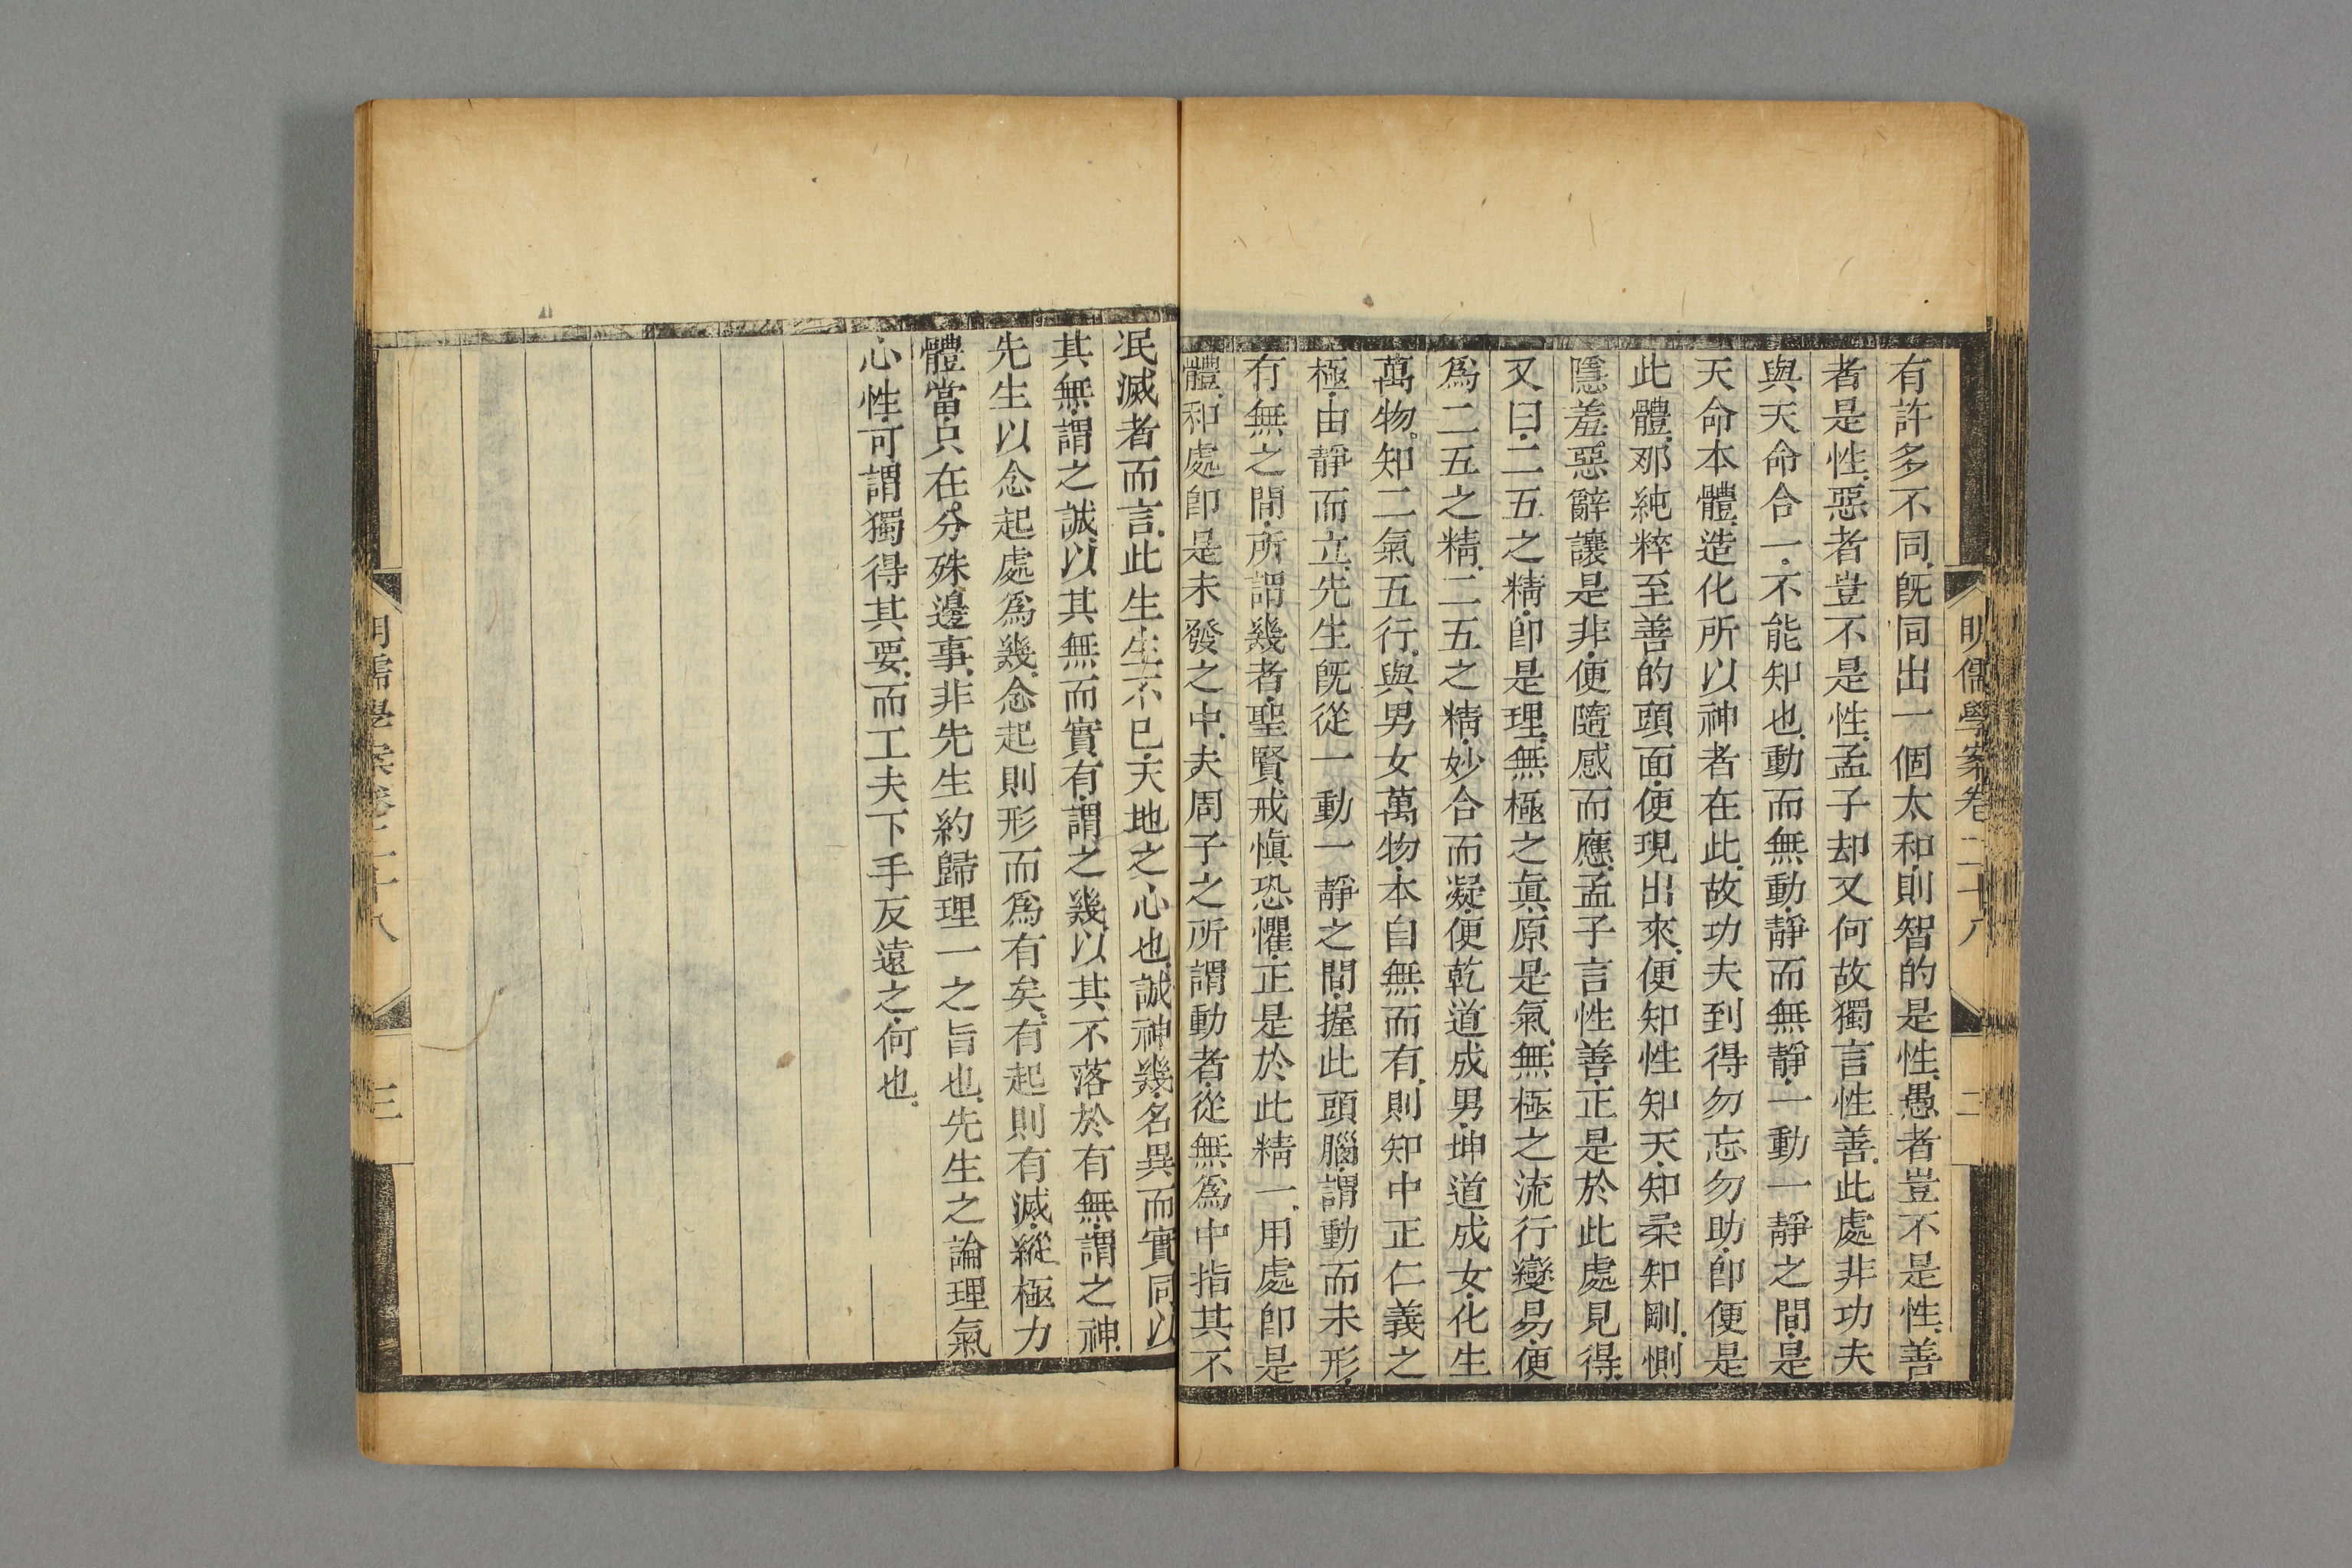 明儒學案卷二十八 二
有許多不同.旣同出一個太和.則智的是性.愚者豈不是性.善
者是性.惡者豈不是性.孟子却又何故獨言性善.此處非功夫
與天命合一.不能知也.動而無動.靜而無靜.一動一靜之間.是
天命本體.造化所以神者在此.故功夫到得勿忘勿助.卽便是
此體.那純粹至善的頭面.便現出來.便知性知天.知柔知剛.惻
隱羞惡辭讓是非.便隨感而應.孟子言性善.正是於此處見得.
又曰.二五之精.卽是理.無極之眞.原是氣.無極之流行變易.便
爲二五之精.二五之精.妙合而凝.便乾道成男.坤道成女.化生
萬物.知二氣五行.與男女萬物.本自無而有.則知中正仁義之
極.由靜而立.先生旣從一動一靜之間.握此頭腦.謂動而未形.
有無之間.所謂幾者.聖賢戒愼恐懼.正是於此精一.用處卽是
體.和處卽是未發之中.夫周子之所謂動者.從無爲中指其不
泯滅者而言.此生生不已.天地之心也.誠神幾.名異而實同.以
其無.謂之誠.以其無而實有.謂之幾.以其不落於有無.謂之神.
先生以念起處爲幾.念起則形而爲有矣.有起則有滅.縱極力
體當.只在分殊邊事.非先生約歸理一之旨也.先生之論理氣
心性.可謂獨得其要.而工夫下手反遠之.何也.
明儒學案卷二十八 三